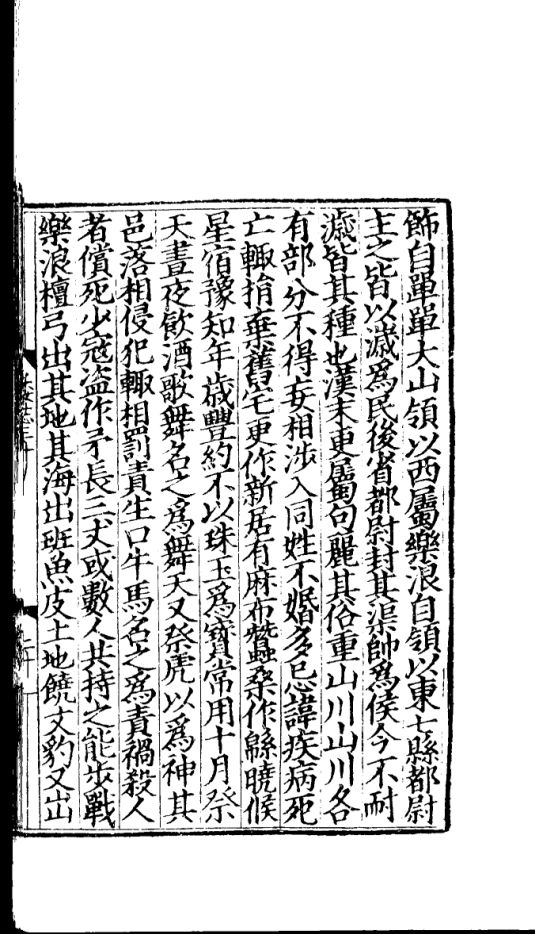 飾自單單大山領以西屬樂浪自領以東七縣都尉
主之皆以濊爲民後省都尉封其渠帥爲侯今不耐
濊皆其種也漢末更屬句麗其俗重山川山川各
有部分不得妄相涉入同姓不婚多忌諱疾病死
亡輙捐棄舊宅更作新居有麻布蠶桑作緜曉候
星宿豫知年歲豐約不以珠玉爲寶常用十月祭
天晝夜飲酒歌舞名之爲舞天又祭虎以爲神其
邑落相侵犯輙相罰責生口牛馬名之爲責禍殺人
者償死少寇盗作矛長三丈或數人共持之能步戰
樂浪檀弓出其地其海出班魚皮土地饒文豹又出